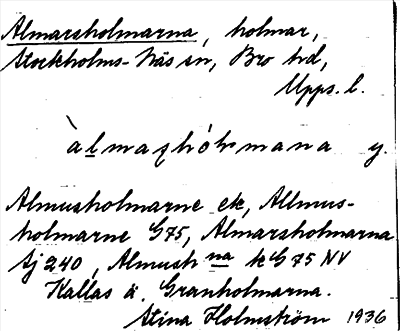 Almarsholmarna, holmar,
Stockholms-Näs sn, Bro hd,
Upps. l.
àlmaʂhólmana y.
Almusholmarne ek, Allmus-
holmarne G75, Almarsholmarna
Sj 240, Almush na k G 75 NV
Kallas ä. Granholmarna.
Stina Holmström 1936